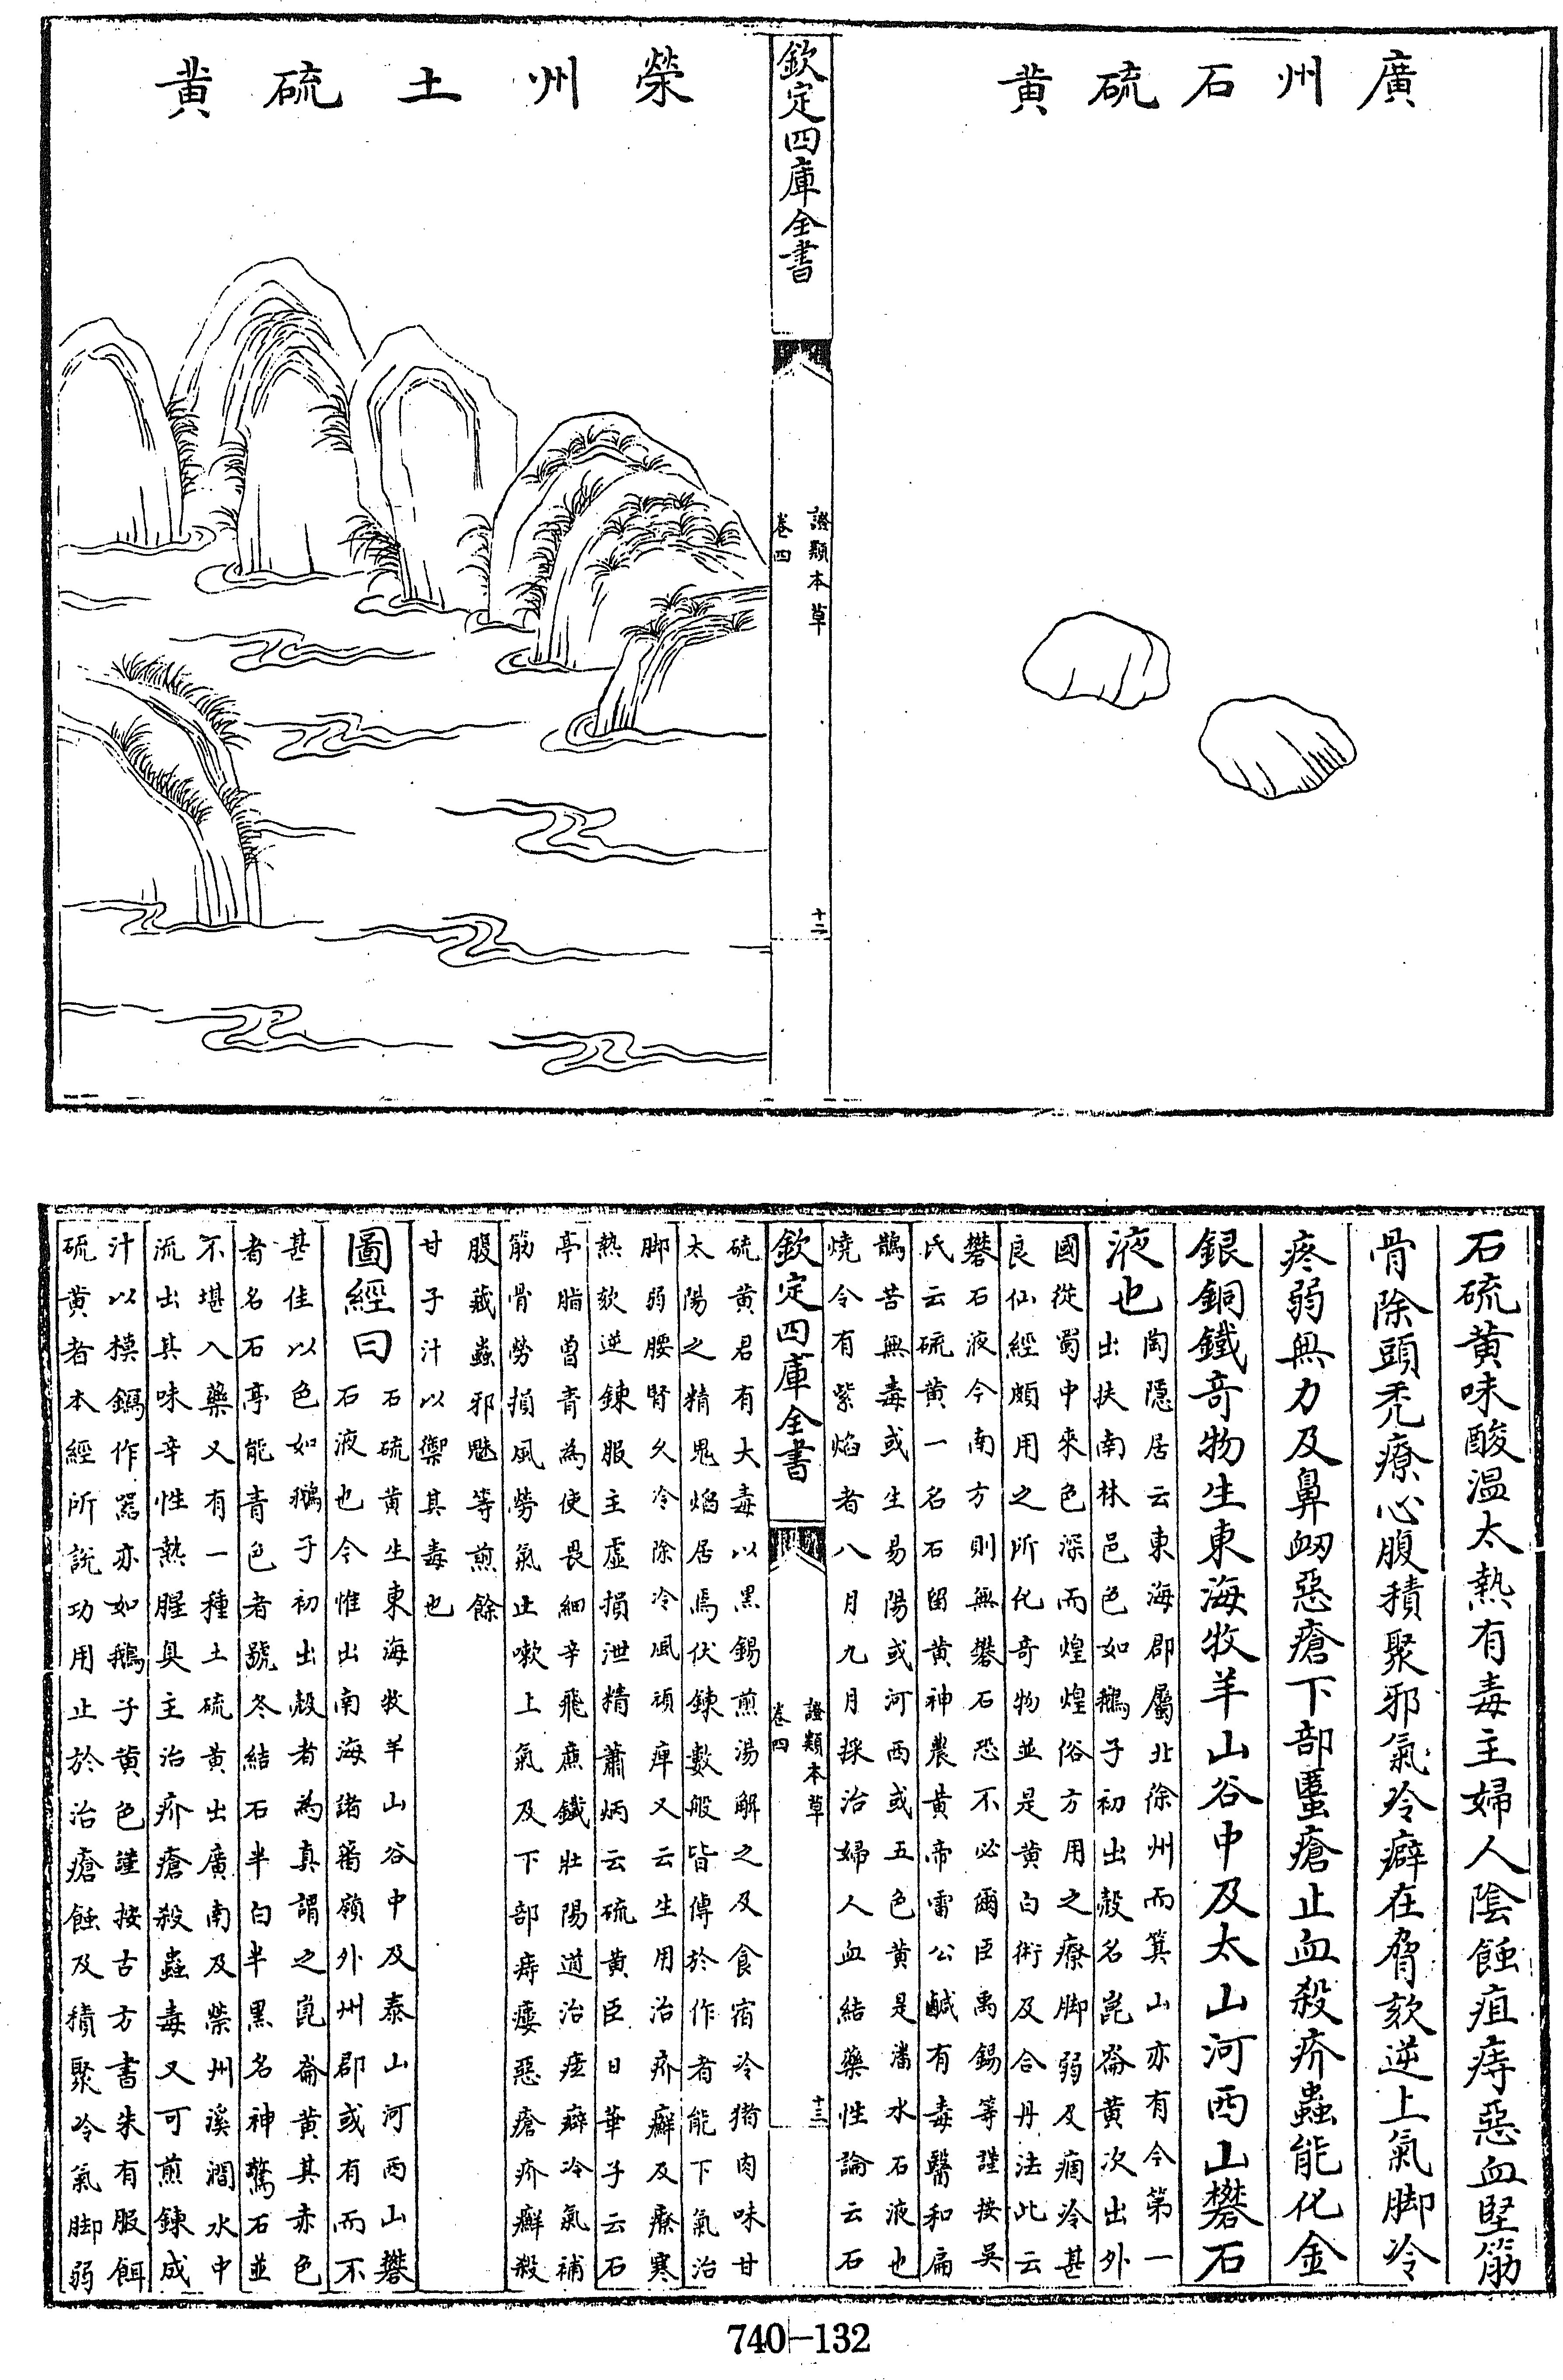 廣州石硫黄
欽定四庫全書
證類本草
卷四
十二
榮州土硫黄
石硫黄味酸温太熱有毒主婦人陰蝕疽痔惡血堅筋
骨除頭禿療心腹積聚邪氣冷癖在脅欬逆上氣脚冷
疼弱無力及鼻衂惡瘡下部䘌瘡止血殺疥蟲能化金
銀銅鐵竒物生東海牧羊山谷中及太山河西山礬石
液也
陶隱居云東海郡屬北徐州而箕山亦有今第一
出扶南林邑色如鵝子初出殼名崑崙黄次出外
國從蜀中來色深而煌煌俗方用之療脚弱及痼冷甚
良仙經頗用之所化奇物並是黄白術及合丹法此云
礬石液今南方則無礬石恐不必爾臣禹錫等謹按吳
氏云硫黄一名石留黄神農黄帝雷公鹹有毒醫和扁
鵲苦無毒或生易陽或河西或五色黄是潘水石液也
燒令有紫焰者八月九月採治婦人血結藥性論云石
欽定四庫全書
證類本草
卷四
十三
硫黄君有大毒以黑錫煎湯解之及食宿冷猪肉味甘
太陽之精鬼焰居焉伏鍊數般皆傳於作者能下氣治
脚弱腰腎久冷除冷風頑痺又云生用治疥癬及療寒
熱欬逆鍊服主虛損泄精蕭炳云硫黄臣日華子云石
亭脂曾青為使畏細辛飛㢘鐵壯陽道治痃癖冷氣補
筋骨勞損風勞氣止嗽上氣及下部痔瘻惡瘡疥癬殺
腹藏蟲邪魅等煎餘
甘子汁以禦其毒也
圖經曰
石硫黄生東海牧羊山谷中及泰山河西山礬
石液也今惟出南海諸蕃嶺外州郡或有而不
甚佳以色如鵝子初出殼者為真謂之崑崙黄其赤色
者名石亭能青色者號冬結石半白半黑名神驚石並
不堪入藥又有一種土硫黄出廣南及榮州溪澗水中
流出其味辛性熱腥臭主治疥瘡殺蟲毒又可煎鍊成
汁以模鑄作器亦如鵝子黄色謹按古方書未有服餌
硫黄者本經所說功用止於治瘡蝕及積聚冷氣脚弱
740-132